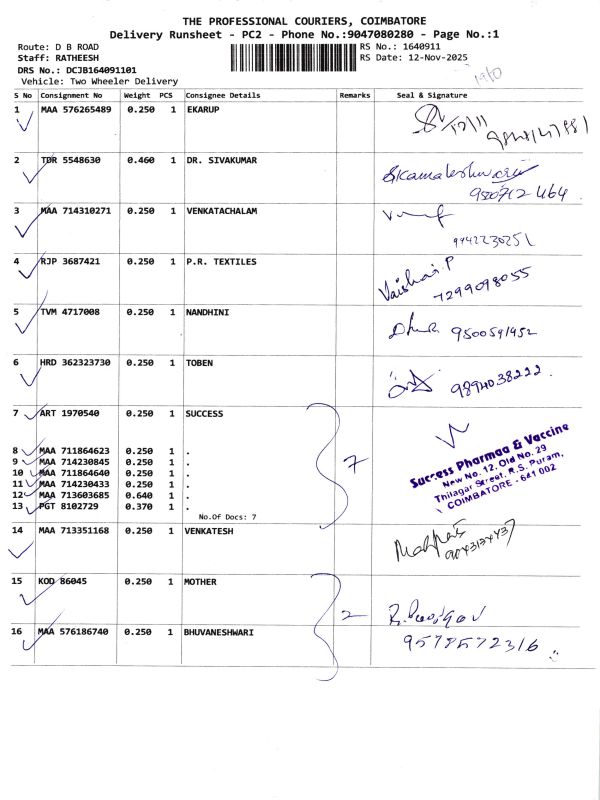 THE PROFESSIONAL COURIERS, COIMBATORE
Delivery Runsheet - PC2 - Phone No.:9047080280 - Page No.:1
Route: D B ROAD RS No.: 1640911
Staff: RATHEESH RS Date: 12-Nov-2025
DRS No.: DCJB164091101
Vehicle: Two Wheeler Delivery
S No Consignment No Weight PCS Consignee Details Remarks Seal & Signature
1 MAA 576265489 0.250 1 EKARUP
2 TDR 5548630 0.460 1 DR. SIVAKUMAR
9500712464
3 MAA 714310271 0.250 1 VENKATACHALAM
9942230251
4 RJP 3687421 0.250 1 P.R. TEXTILES
7299098055
5 TVM 4717008 0.250 1 NANDHINI
9500591452
6 HRD 362323730 0.250 1 TOBEN
9894038222
7 ART 1970540 0.250 1 SUCCESS
8 MAA 711864623 0.250 1 .
9 MAA 714230845 0.250 1 .
10 MAA 711864640 0.250 1 .
11 MAA 714230433 0.250 1 .
12 MAA 713603685 0.640 1 .
13 PGT 8102729 0.370 1 .
No.Of Docs: 7
7
Success Pharmaa & Vaccine
New No. 12, Old No. 29
Thilagar Street, R.S. Puram,
COIMBATORE - 641 002
14 MAA 713351168 0.250 1 VENKATESH
15 KOD 86045 0.250 1 MOTHER
2
16 MAA 576186740 0.250 1 BHUVANESHWARI
9578572316